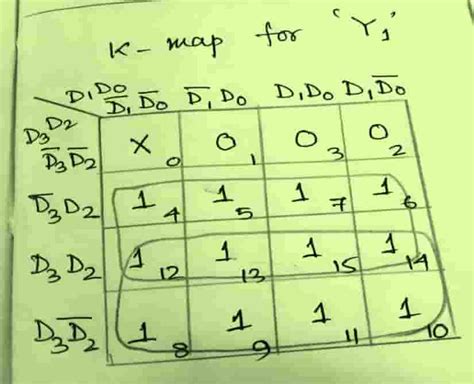 K-map for 'Y₁'
D₁D₀
D̅₁D̅₀ D̅₁D₀ D₁D₀ D₁D̅₀
D₃D₂
D̅₃D̅₂ X₀ 0₁ 0₃ 0₂
D̅₃D₂ 1₄ 1₅ 1₇ 1₆
D₃D₂ 1₁₂ 1₁₃ 1₁₅ 1₁₄
D₃D̅₂ 1₈ 1₉ 1₁₁ 1₁₀